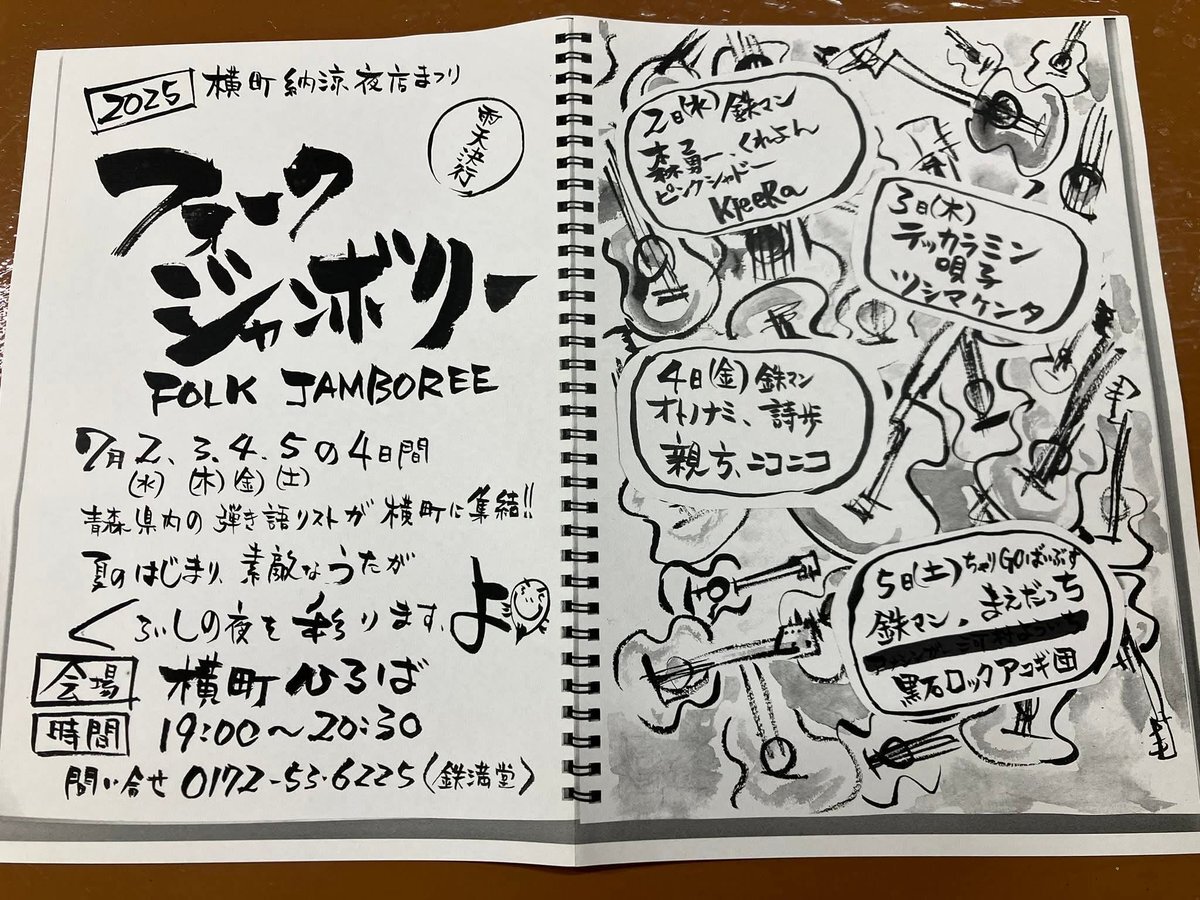 2025 横町納涼夜店まつり
雨天決行
フォーク
ジャンボリー
FOLK JAMBOREE
7月2、3、4、5の4日間
(水) (木)(金)(土)
青森県内の弾き語リストが横町に集結!!
夏のはじまり、素敵なうたが
くろいしの夜を彩りますよ
会場 横町ひろば
時間 19:00〜20:30
問い合せ 0172-53-6225(鉄満堂)
2日(水)鉄マン
森勇一、くれよん
ピンクシャドー
KieeRa
3日(木)
テッカラミン
唄子
ツシマケンタ
4日(金)鉄マン
オトノナミ、詩歩
親方、ニコニコ
5日(土)ちゃりGOばいぶす
鉄マン、まえだっち
黒石ロックアコギ団